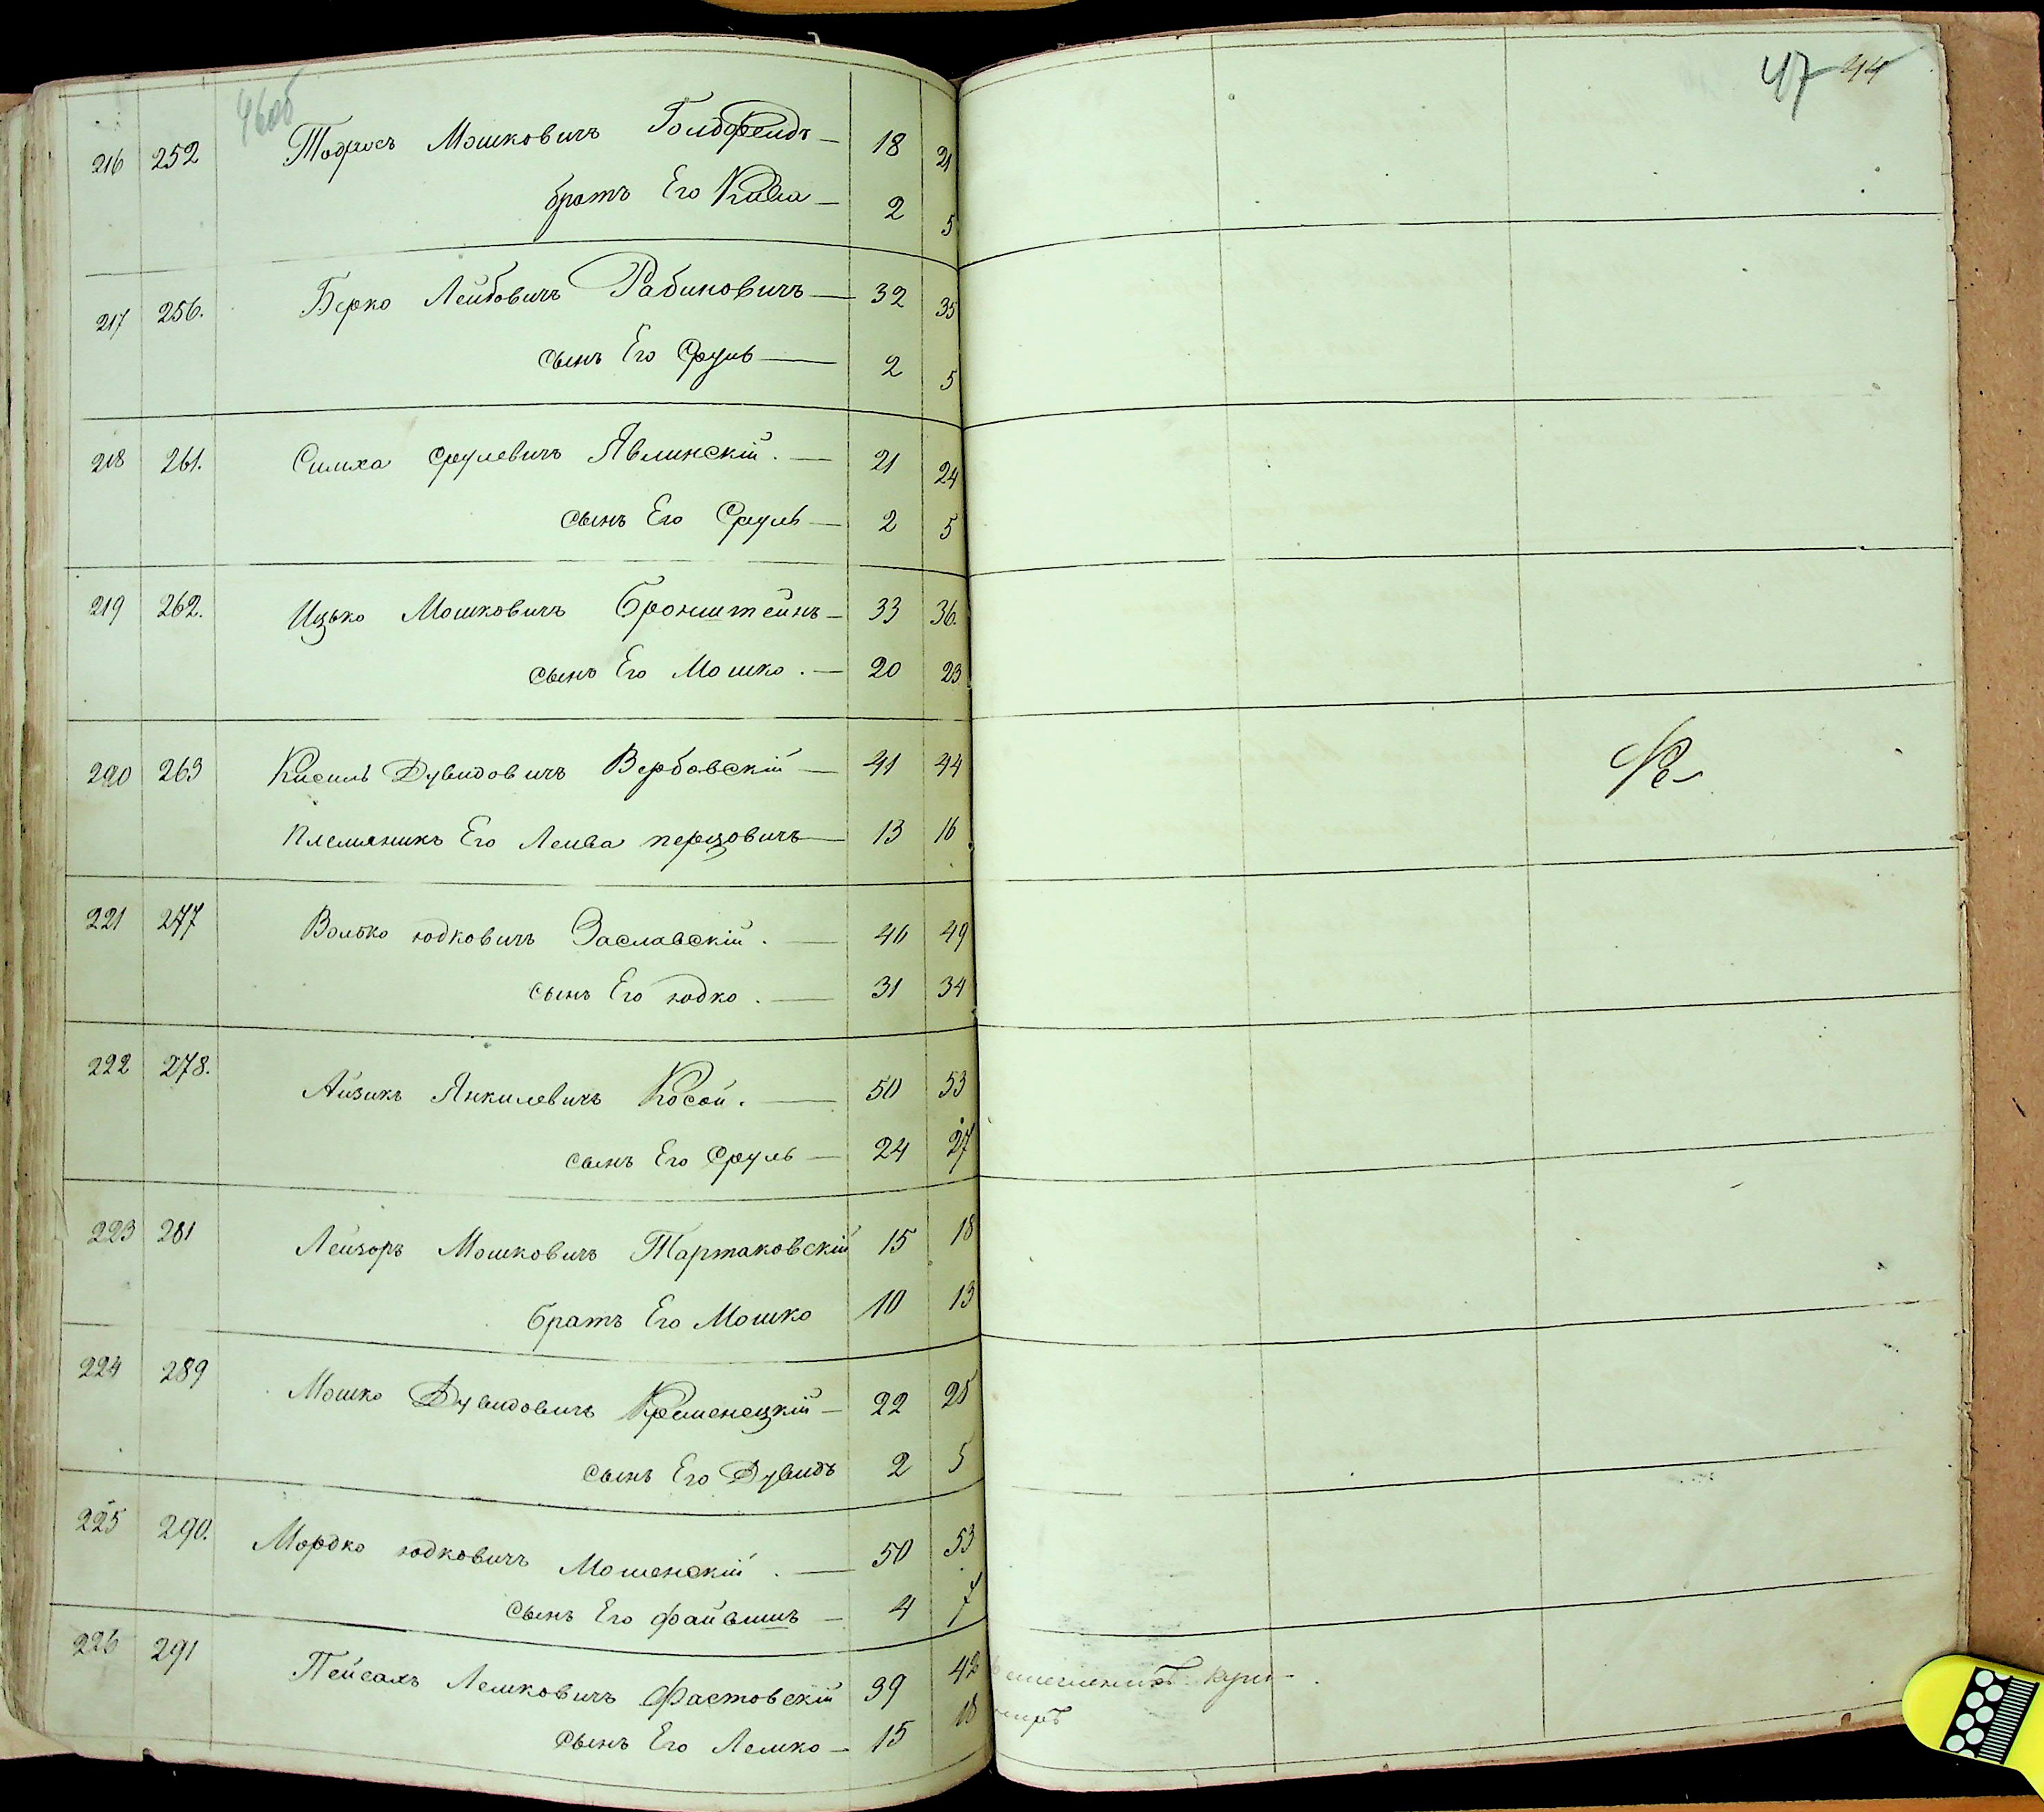 46об
47 44
216 252 Тодросъ Мошковичъ Голдфельдъ — 18 21
братъ Его Кива — 2 5
217 256. Берко Лейбовичъ Рабиновичъ — 32 35
сынъ Его Сруль — 2 5
218 261. Симха Срулевичъ Явлинскій. — 21 24
сынъ Его Сруль — 2 5
219 262. Ицько Мошковичъ Бронштейнъ — 33 36.
сынъ Его Мошко. — 20 23
220 263 Кисиль Дувидовичъ Вербовскій — 41 44
племяникъ Его Лейва перцовичъ — 13 16
221 277 Волько юдковичъ Заславскій. — 46 49
сынъ Его юдко. — 31 34
222 278. Айзикъ Янкилевичъ Косой. — 50 53
сынъ Его Сруль — 24 27
223 281 Лейзоръ Мошковичъ Тартаковскій 15 18
братъ Его Мошко 10 13
224 289 Мошко Дувидовичъ Кременецкій — 22 25
сынъ Его Дувидъ 2 5
225 290. Мордко юдковичъ Мошенскій. — 50 53
сынъ Его файвишъ — 4 7
226 291 Пейсахъ Лешковичъ Фастовскій 39 42
сынъ Его Лешко — 15 18